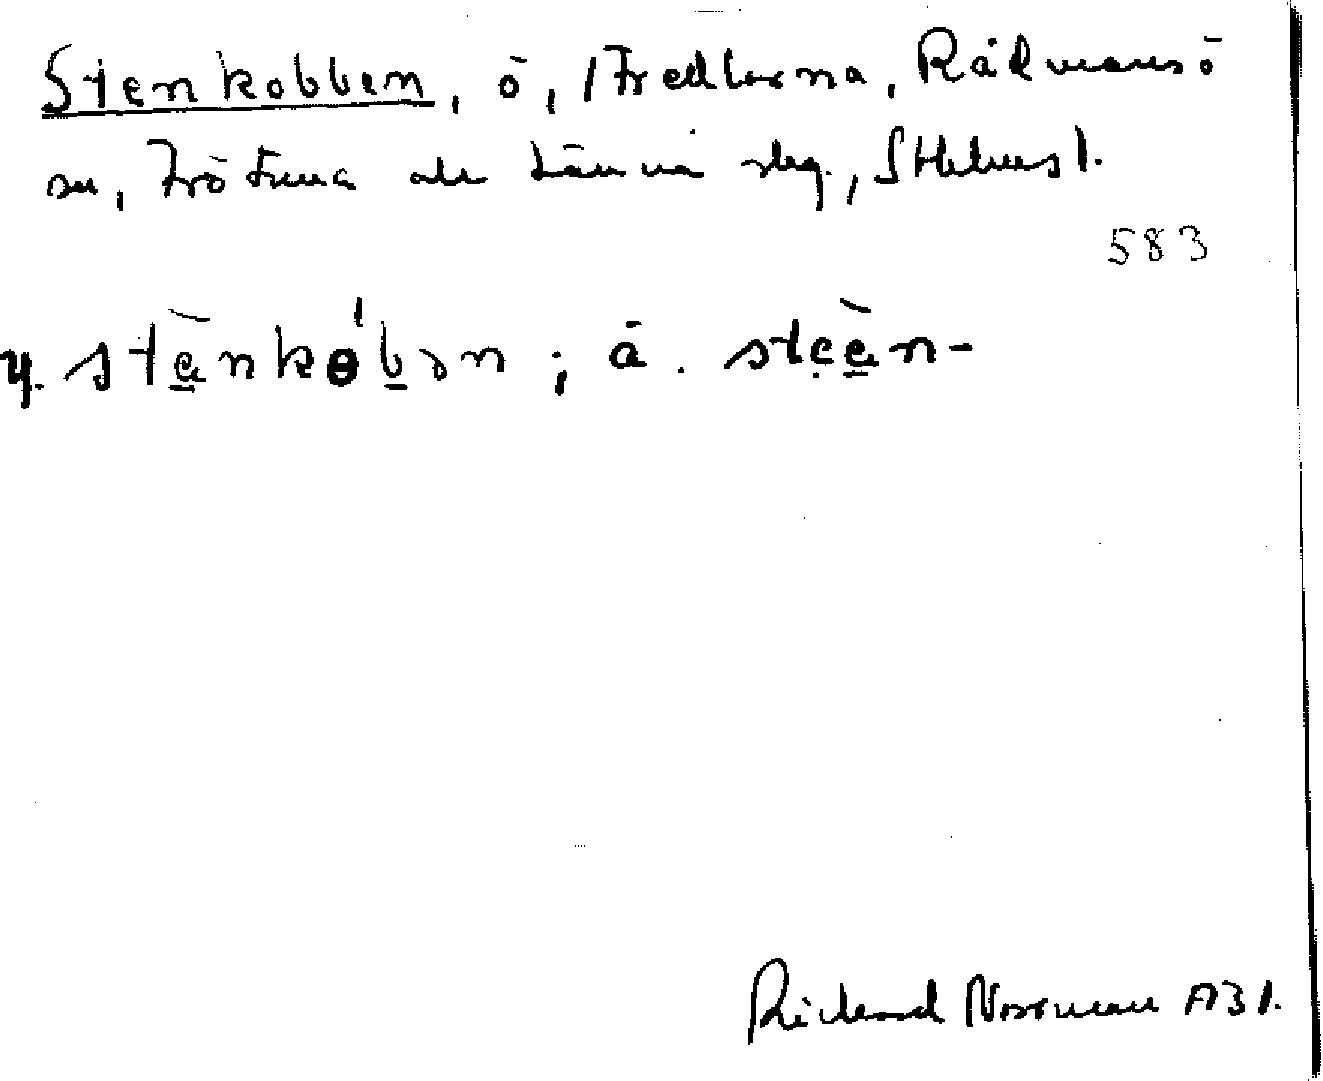 Stenkobben, ö, / Fredlarna, Rådmansö
sn, Frötuna och Länna slg., Sthlms l.
583
y. stènkɵ́bən; ä. steèn-
Richard Norrman 1931.